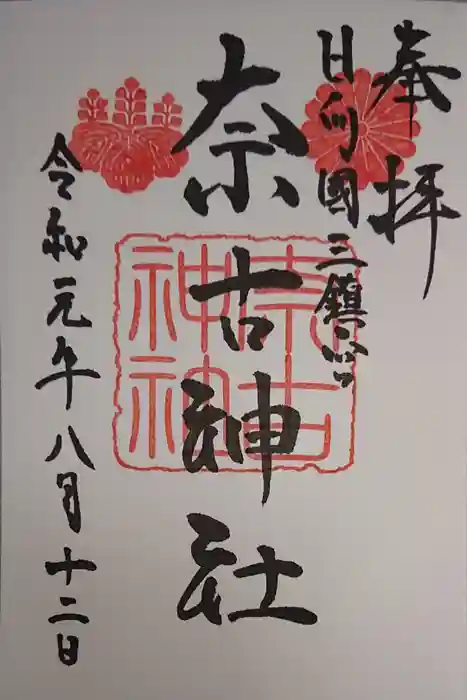 奉拝
日向國三鎮の一
奈古神社
奈古
神社
令和元年八月十二日